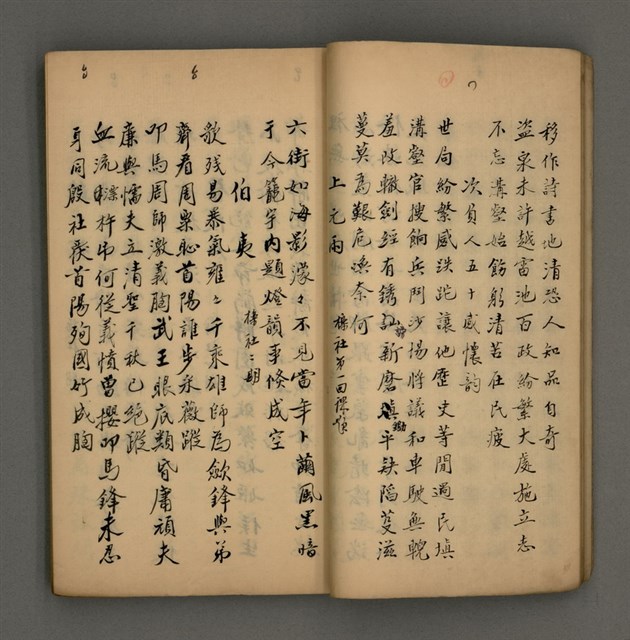 移作詩書地清恐人知品自奇
盜泉未許越雷池百政紛繁大處施立志
不忘溝壑始飭躬清苦在民疲
次負人五十感懷韵
世局紛繁感跌跎讓他歷史等閒過民塡
溝壑官搜餉兵鬥沙場將議和車駛無輗
羞改轍劍經有銹新磨平缺陷蔓滋
蔓莫為艱危喚奈何
上元雨
社第一回課
六街如海影濛々不見當年卜繭風黑暗
于今籠宇內題燈韻事倏成空
伯夷
社二期
歌残易暴氣雍々千乘雄師為斂鋒與弟
齊看周粟恥首陽誰步采薇蹤
叩馬周師激義胸武王眼底類昏庸頑夫
廉與懦夫立清聖千秋已絕蹤
血流杵弔何從義憤曹攖叩馬鋒未忍
身同殷社發首陽殉國竹成胸